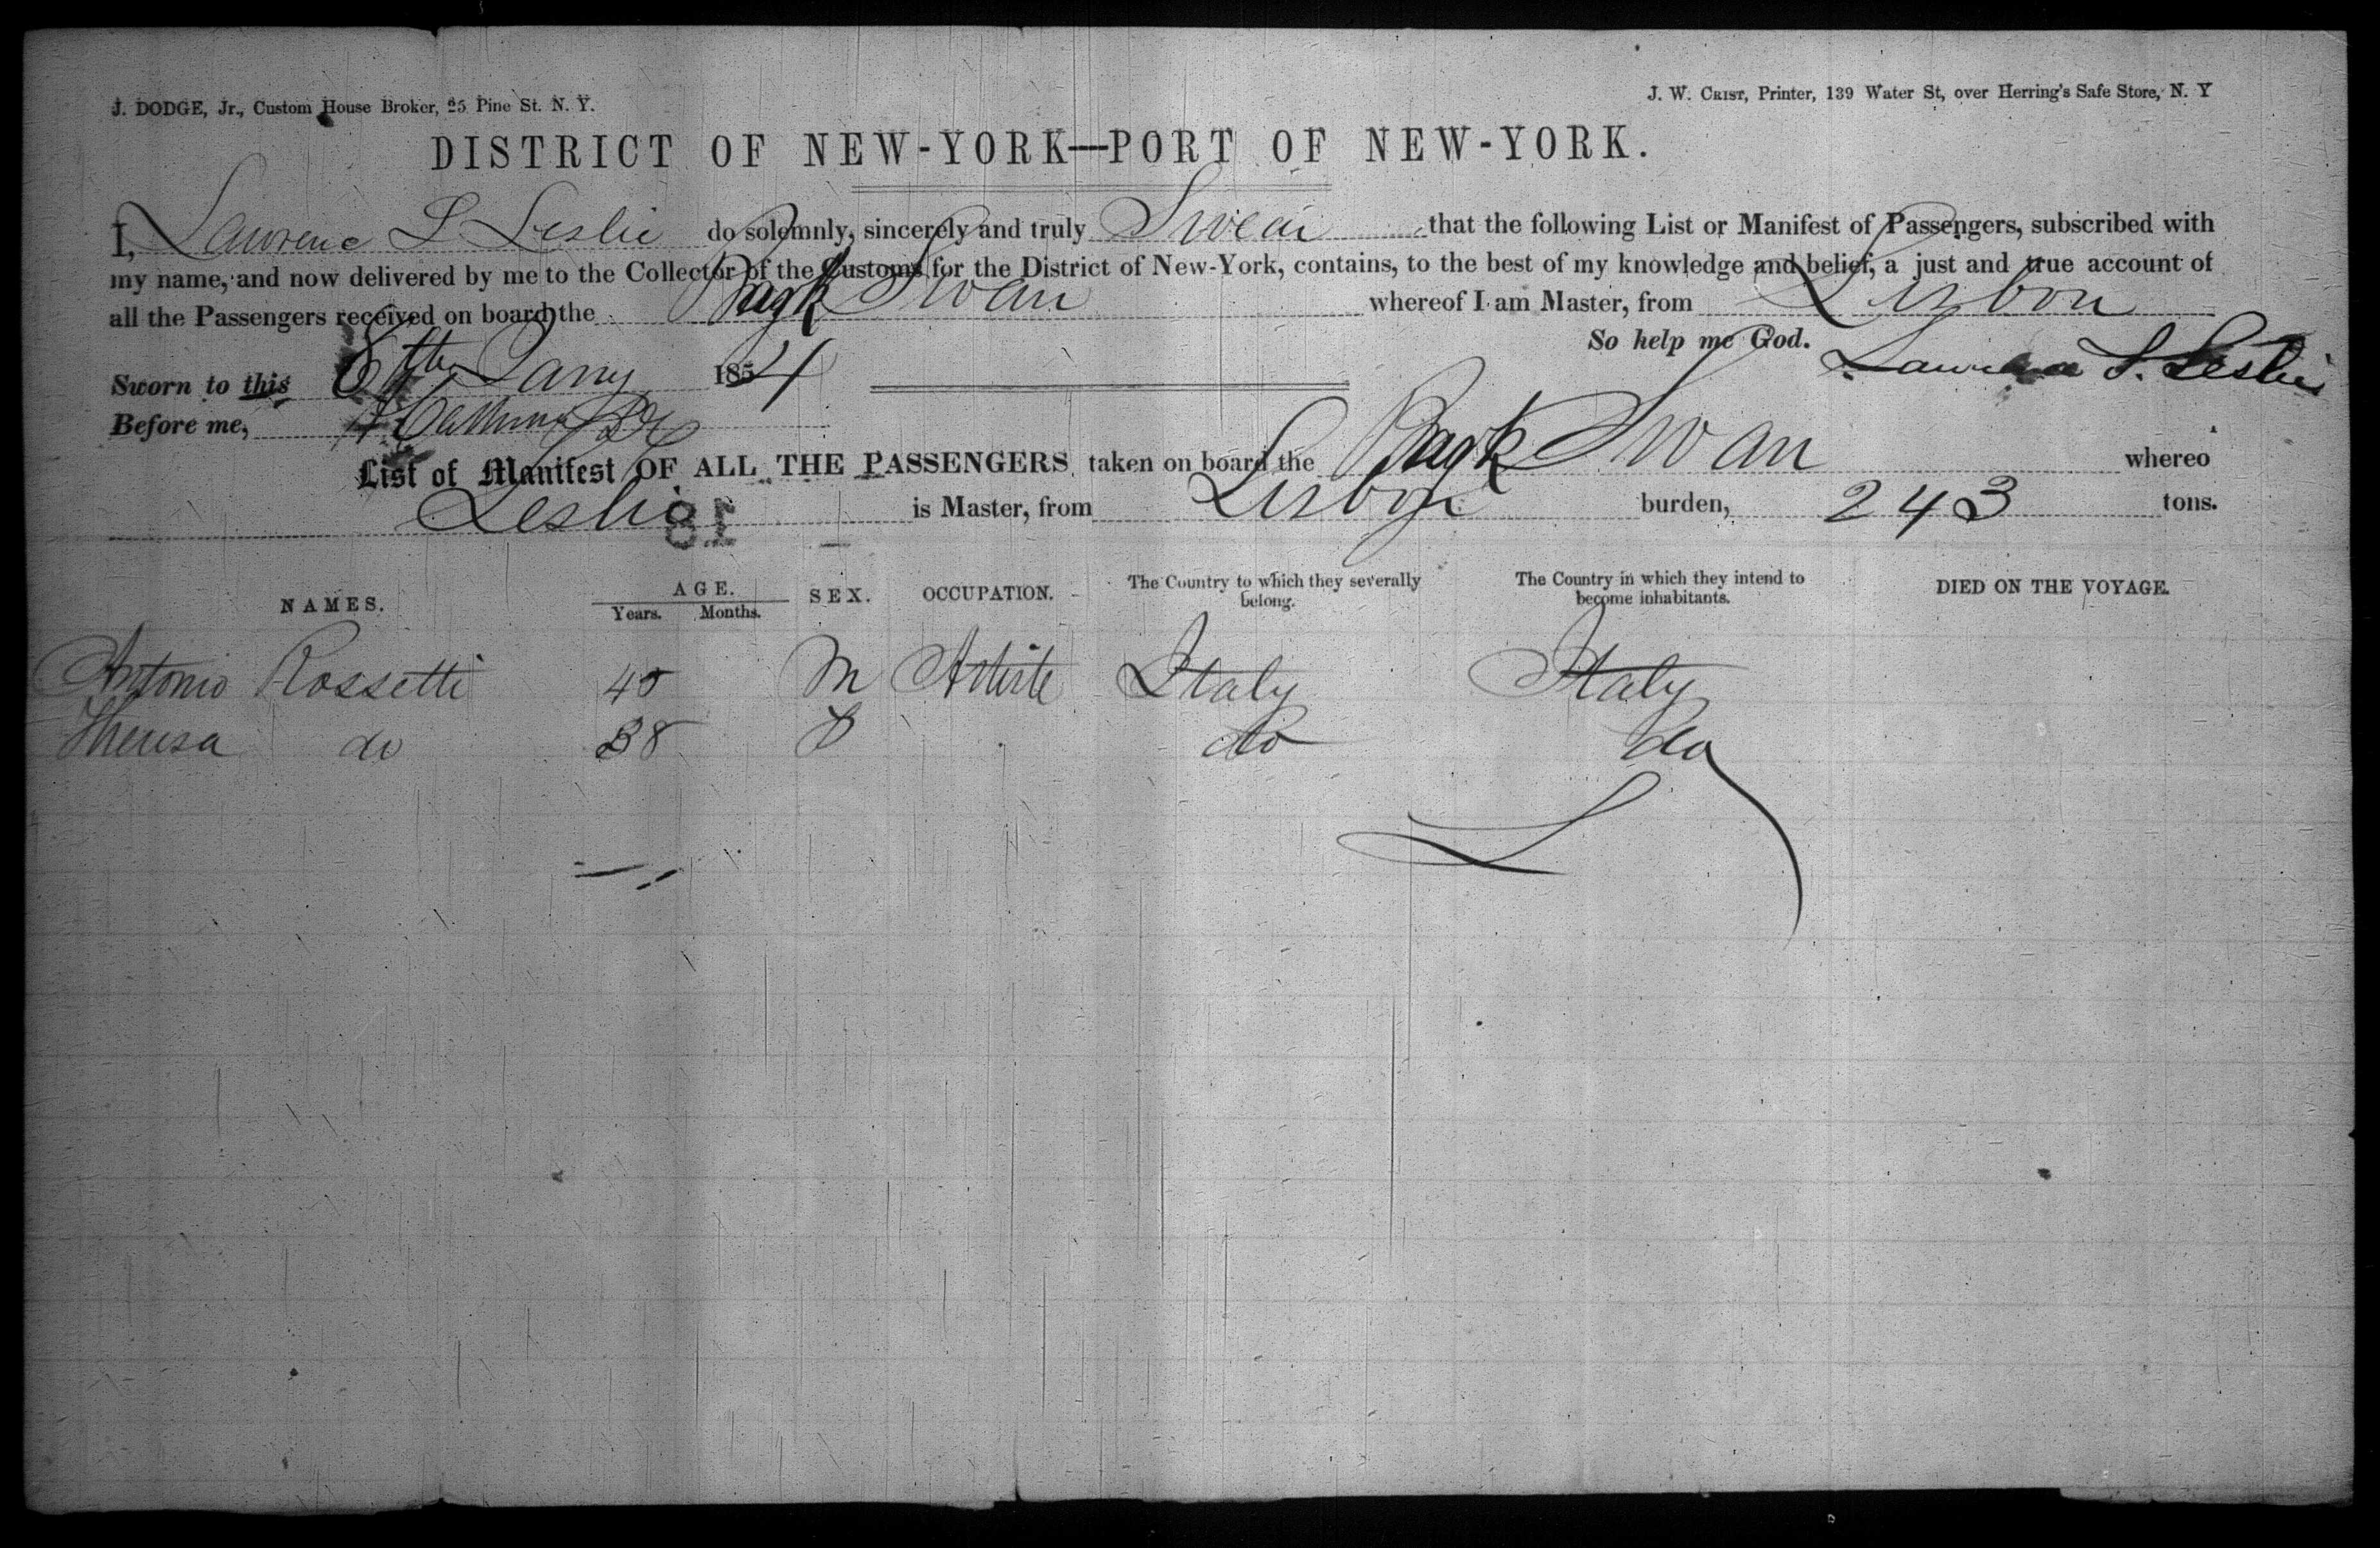 J. DODGE, Jr., Custom House Broker, 25 Pine St. N. Y.
J. W. CRIST, Printer, 139 Water St, over Herring's Safe Store, N. Y
DISTRICT OF NEW-YORK—PORT OF NEW-YORK.
I, Lawrence S Leslie do solemnly, sincerely and truly Swear that the following List or Manifest of Passengers, subscribed with
my name, and now delivered by me to the Collector of the Customs for the District of New-York, contains, to the best of my knowledge and belief, a just and true account of
all the Passengers received on board the Bark Swan whereof I am Master, from Lisbon
So help me God.
Lawrence S. Leslie
Sworn to this 6th Jany 1854
Before me,
List of Manifest OF ALL THE PASSENGERS taken on board the Bark Swan whereo
Leslie is Master, from Lisbon burden, 243 tons.
NAMES. AGE. SEX. OCCUPATION. The Country to which they severally belong. The Country in which they intend to become inhabitants. DIED ON THE VOYAGE.
Years. Months.
Antonio Rossetti 40 M Artiste Italy Italy
Theresa do 38 F do do